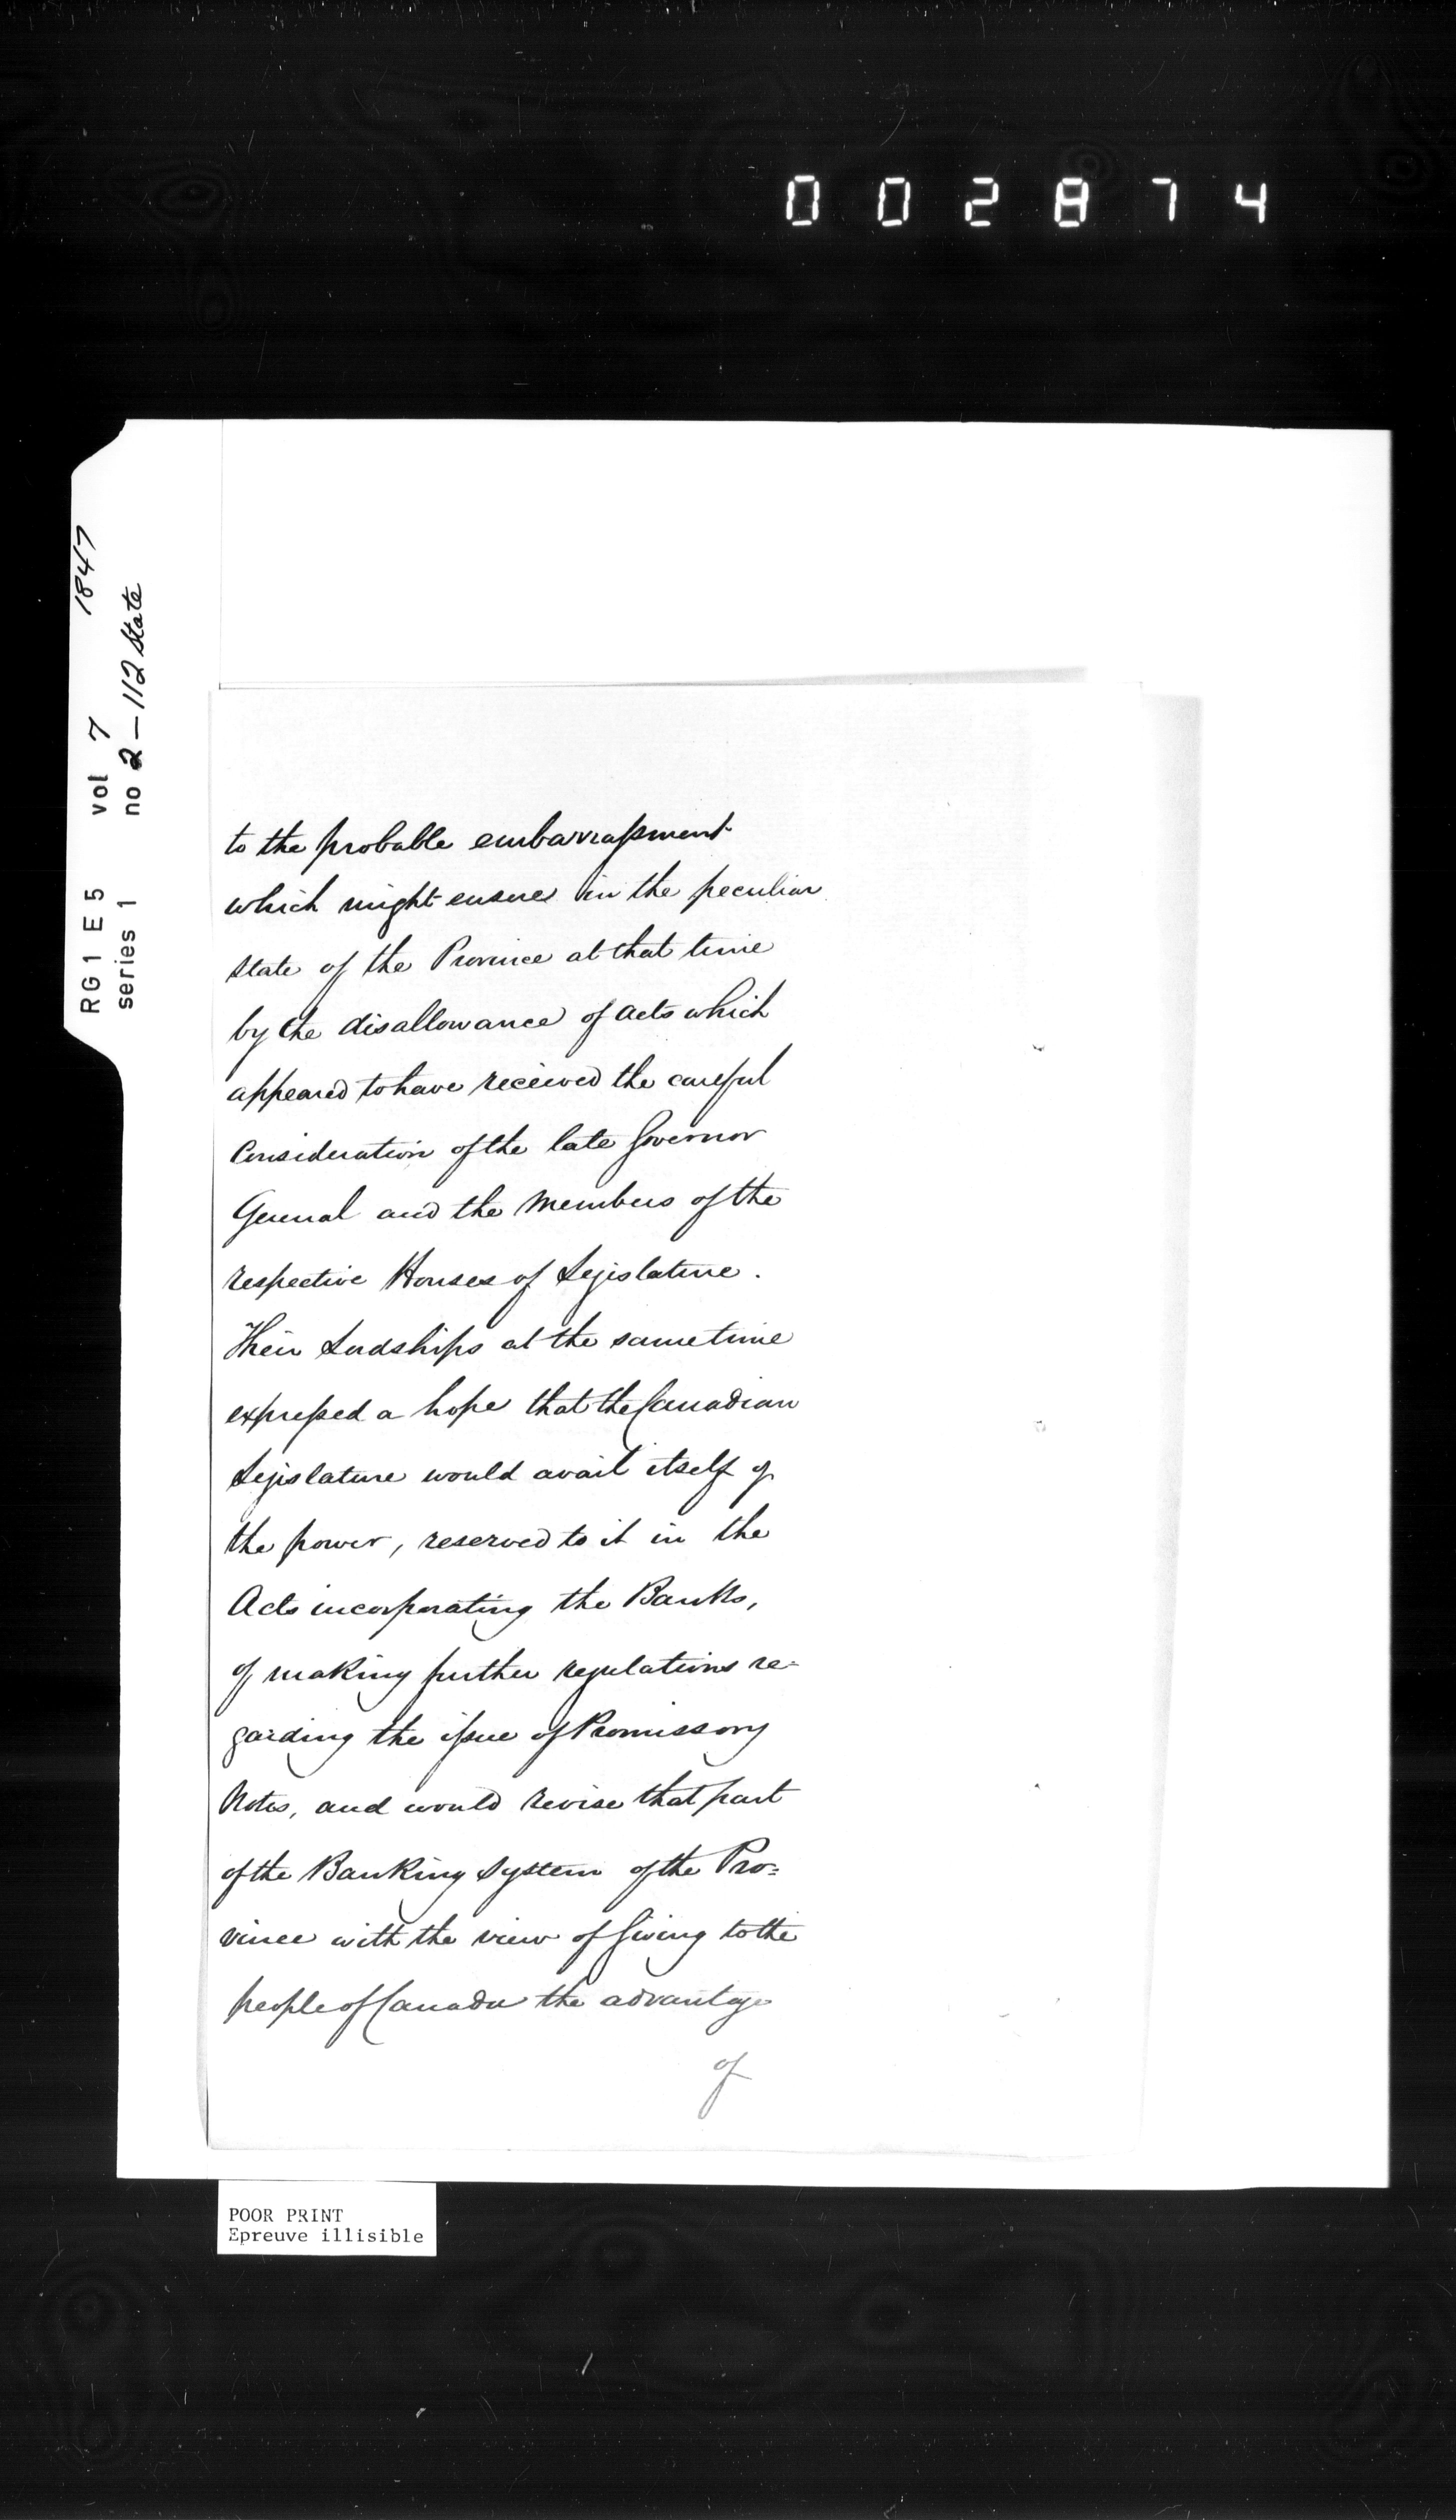 002874
RG1 E5 vol 7 1847
series 1 no 2-112 State
to the probable embarrassment
which might ensue in the peculiar
state of the Province at that time
by the disallowance of Acts which
appeared to have received the careful
Consideration of the late Governor
General and the Members of the
respective Houses of Legislature.
Their Lordships at the same time
expressed a hope that the Canadian
Legislature would avail itself of
the power, reserved to it in the
Acts incorporating the Banks,
of making further regulations re-
garding the issue of Promissory
Notes, and would revise that part
of the Banking System of the Pro=
vince with the view of Giving to the
people of Canada the advantage
of
POOR PRINT
Epreuve illisible